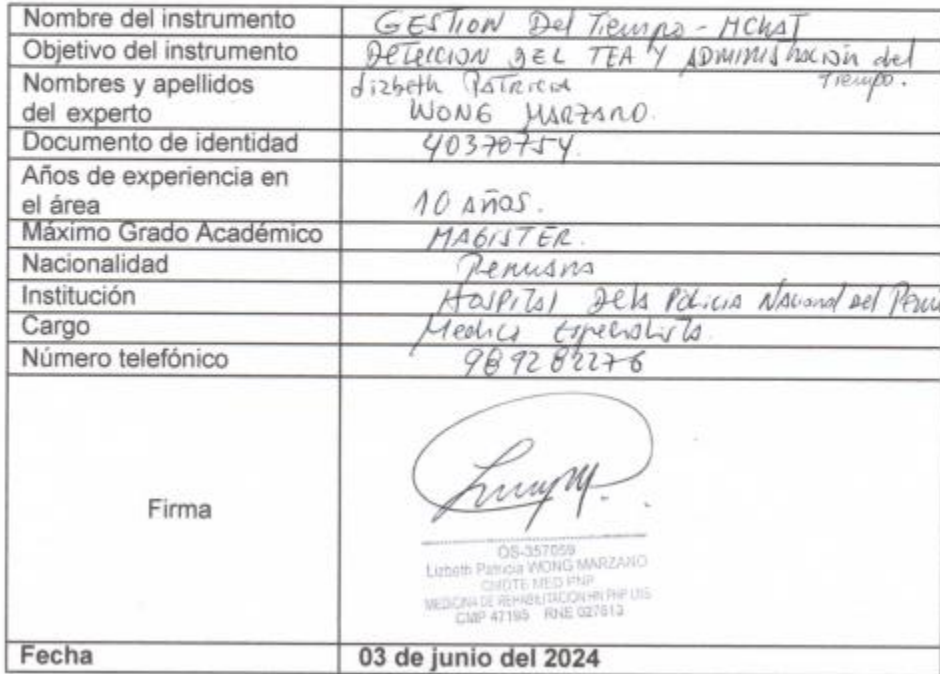 Nombre del instrumento GESTION Del Tiempo - MChAT
Objetivo del instrumento DETECCION DEL TEA Y ADMINISTRACIÓN del Tiempo.
Nombres y apellidos del experto Lizbeth PATRICIA WONG MARZANO.
Documento de identidad 40370754.
Años de experiencia en el área 10 AÑOS.
Máximo Grado Académico MAGISTER.
Nacionalidad Peruana
Institución HOSPITAL DE LA POLICIA NAcional del Peru
Cargo Medico Especialista.
Número telefónico 989282276
Firma
OS-357059
Lizbeth Patricia WONG MARZANO
CMDTE MED PNP
MEDICINA DE REHABILITACION HN PNP LNS
CMP 47195 RNE 027613
Fecha 03 de junio del 2024